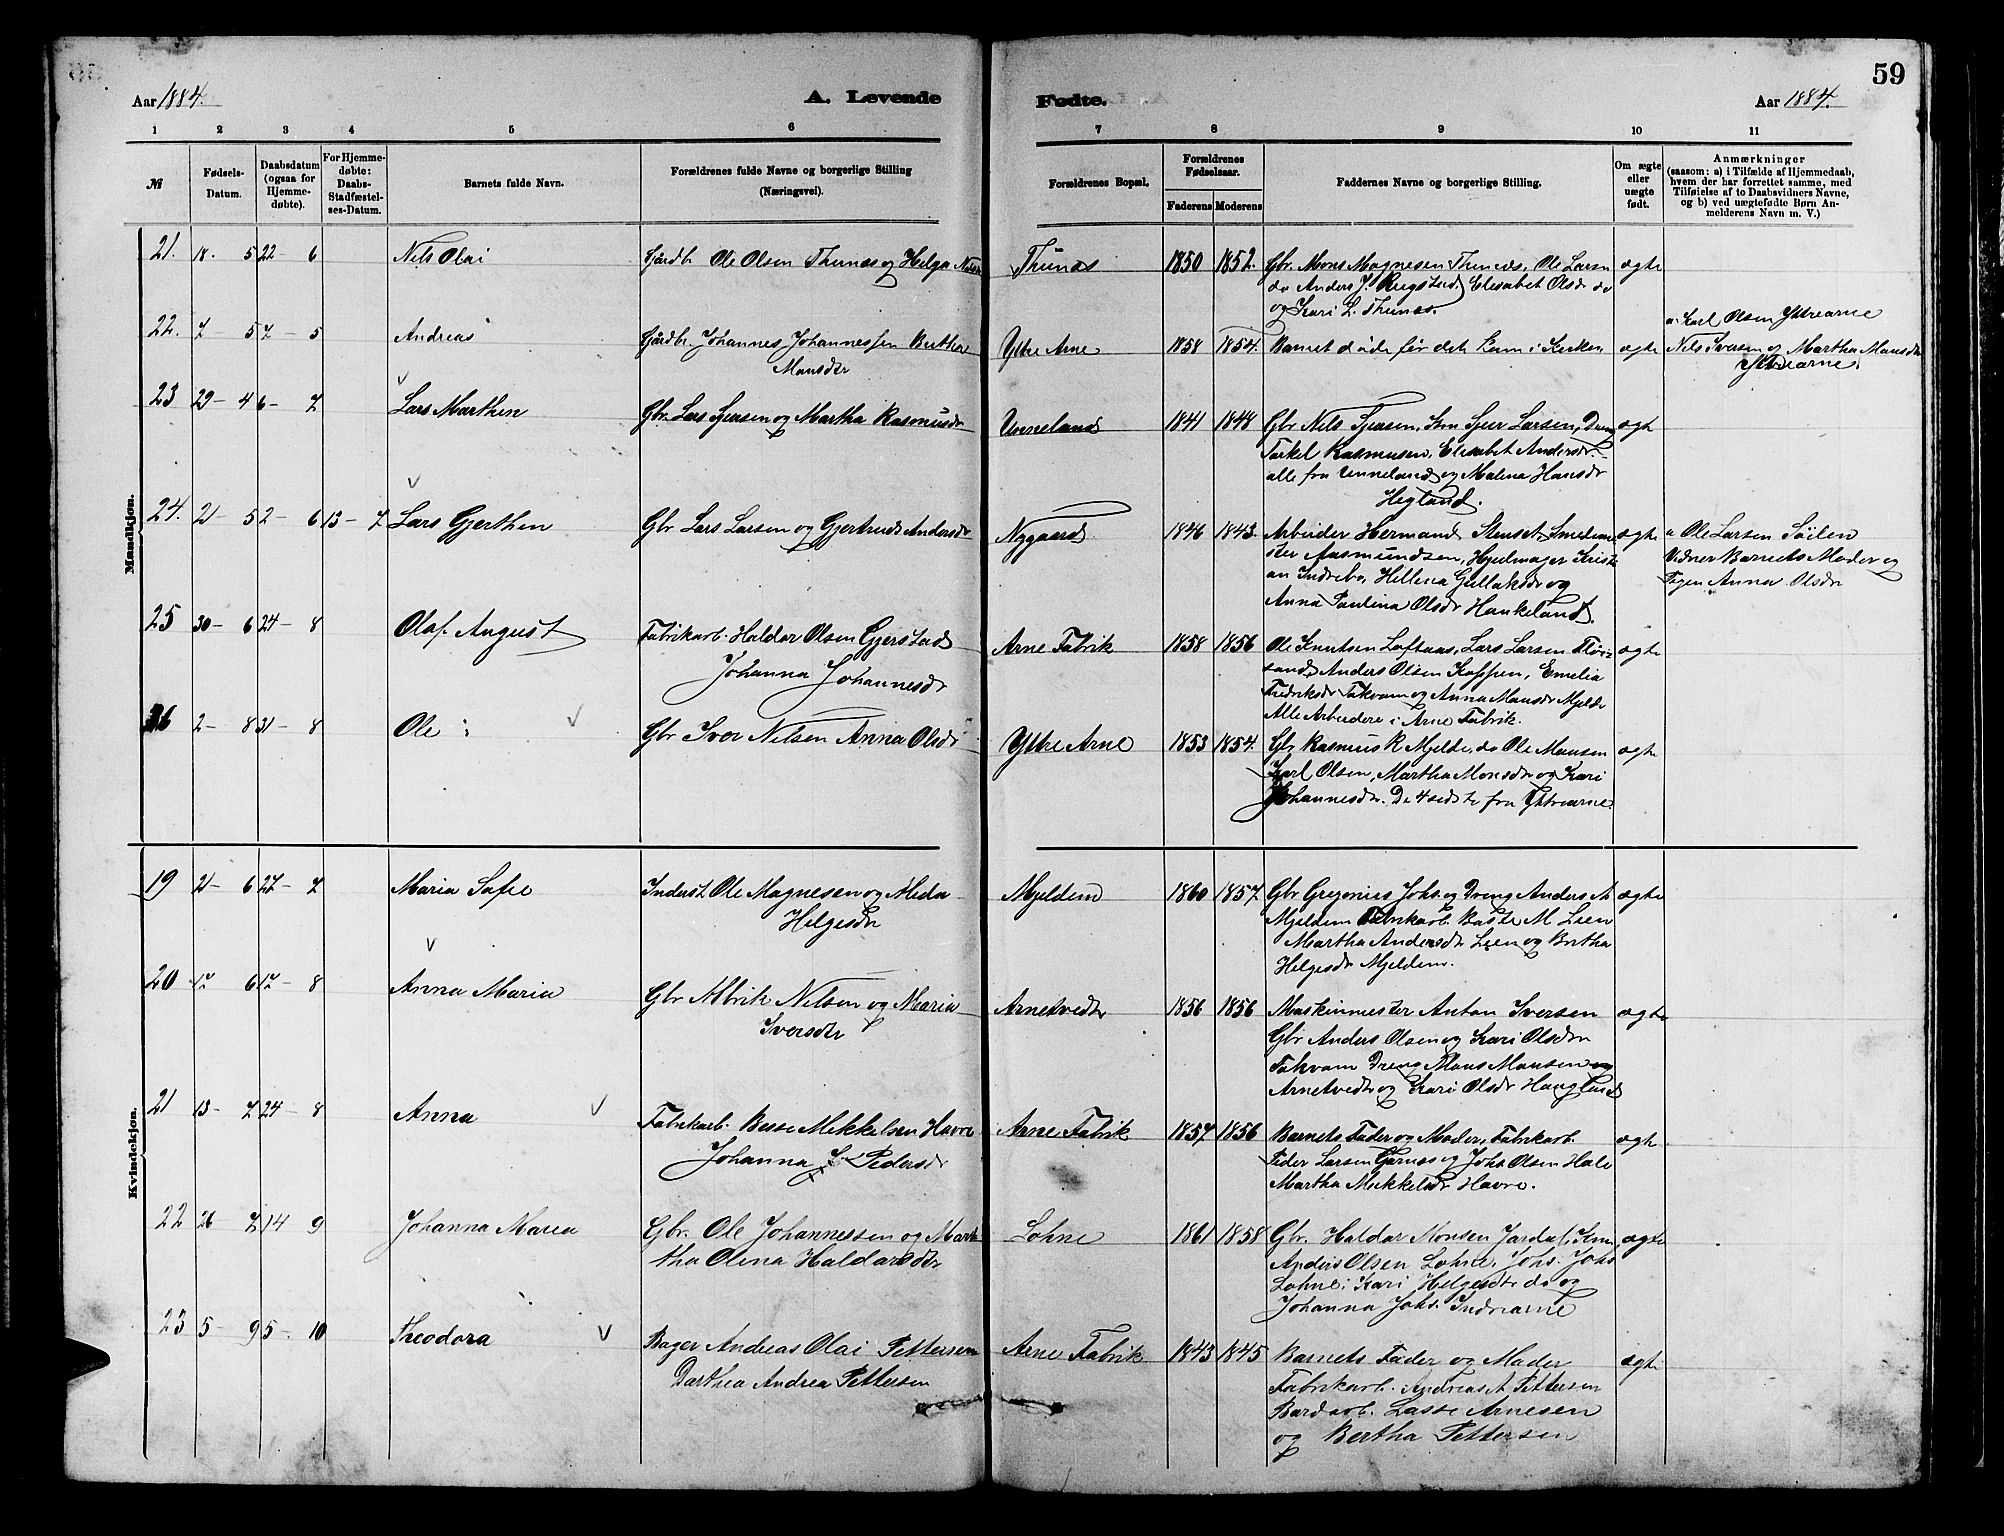 59
Aar 1884.
A. Levende
Fødte.
Aar 1884.
1 2 3 4 5 6 7 8 9 10 11
№
Fødsels-
Datum.
Daabsdatum
(ogsaa for
Hjemme-
døbte).
For Hjemme-
døbte:
Daabs-
Stadfæstel-
ses-Datum.
Barnets fulde Navn.
Forældrenes fulde Navne og borgerlige Stilling
(Næringsvei).
Forældrenes Bopæl.
Forældrenes
Fødselsaar.
Faderens Moderens
Faddernes Navne og borgerlige Stilling.
Om ægte
eller
uægte
født.
Anmærkninger
(saasom: a) i Tilfælde af Hjemmedaab,
hvem der har forrettet samme, med
Tilføielse af to Daabsvidners Navne,
og b) ved uægtefødte Børn An-
melderens Navn m. V.)
Mandkjøn.
21. 18. 5 22 - 6 Nils Olai
Gårdbr Ole Olsen Thunæs og Helga Nilsdr
Thunæs 1850 1852. Gbr. Mons Magnesen Thunæs, Ole Larsn
do Anders J. Rugstad Elisabet Olsdr do
og Kari L. Thunæs.
ægte
22. 7 - 5 7 - 5 Andreas
Gårdbr. Johannes Johannessen Bertha
Mansdtr
Ytre Arne 1858 1854. Barnet døde før det kom i Kirken ægte
a. Karl Olsen Ytrearne
Nils Iversen og Martha Mansdtr
Ytrearne.
23 29 - 4 6 - 7 Lars Marthen
Gbr. Lars Sjursen og Martha Rasmusdr
Unneland 1841 1848 Gbr Nils Sjursen, Søn Sjur Larsen, Dreng
Torkel Rasmusen, Elisabet Andersdr -
alle fra Unneland og Malena Hansdr
Hegland.
ægte
24. 21 - 5 2 - 6 13 - 7 Lars Gjerthen
Gbr Lars Larsen og Gjertrud Andersdr
Nygaard 1846 1843. Arbeider Hermand Stenset Smedem
ster Aasmundsen, Hjulmager Krist
an Indrebø, Hellena Gullaksdr og
Anna Paulina Olsdr Haukeland.
ægte
a Ole Larsen Söilen
Vidner Barnets Moder og
Pigen Anna Olsdr
25 30 - 6 24 - 8 Olaf August
Fabrikarb. Haldor Olsen Gjerstad
Johanna Johannesdr
Arne Fabrik 1858 1856 Ole Knutsen Loftaas, Lars Larsen Fløi-
sand, Anders Olsen Koppen, Emelia
Fredriksdr Takvam og Anna Mansdr Mjelde
Alle Arbeidere i Arne Fabrik.
ægte
26 2 - 8 31 - 8 Ole
Gbr Iver Nilsen Anna Olsdr
Ytre Arne 1853 1854. Gbr Rasmus R Mjelde, do Ole Mansen
Karl Olsen, Martha Monsdr og Kari
Johannesdr. De 4 sidste fra Ytrearne
ægte
Kvindekjøn.
19 21 - 6 27 - 7 Maria Sofie
Inderst Ole Magnesen og Alida
Helgesdr
Mjeldem 1860 1857. Gbr Gregorius Johs og Dreng Anders A
Mjeldem Fabrikarb. Baste M Leen
Martha Andersdr Leen og Bertha
Helgesdr Mjeldem.
ægte
20 17 - 6 17 - 8 Anna Maria
Gbr Albrik Nilsen og Maria
Iversdtr
Arnetvedt 1856 1856 Maskinmester Anton Iversen
Gbr Anders Olsen og Kari Olsdr
Takvam Dreng Mons Monsen
Arnetvedt og Kari Olsdr Haugland
ægte
21 13 - 7 24 - 8 Anna
Fabrikarb. Besse Mikkelsen Havre
Johanna S. Pedersdr
Arne Fabrik 1857 1856 Barnets Fader og Moder, Fabrikarb.
Peder Larsen Garnæs og Johs Olsen Hale
Martha Mikkelsdr Havre.
ægte
22 26 7 14 9 Johanna Maria
Gbr. Ole Johannessen og Mar-
tha Olina Haldorsdtr
Lohne 1861 1858 Gbr. Haldor Monsen Jordal,
Anders Olsen Lohne, Johs. Johs
Lohne, Kari Helgesdtr do og
Johanna Johs. Indrearne
ægte
23 5 9 5 - 10 Theodora
Bager Andreas Olai Pettersen
Dorthea Andrea Pettersen
Arne Fabrik 1843 1845 Barnets Fader og Moder
Fabrikarb. Andreas A Pettersen
Bordarb. Lasse Arnesen
og Bertha Pettersen
ægte